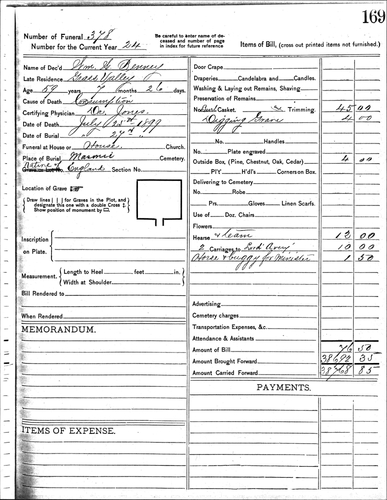 169
Number of Funeral 378
Number for the Current Year 24
Be careful to enter name of deceased and number of page in index for future reference
Items of Bill, (cross out printed items not furnished.)
Name of Dec'd Wm. A. Benney
Late Residence Grass Valley
Age 59 years 7 months 26 days.
Cause of Death Consumption
Certifying Physician Dr. Jones.
Date of Death July 25th 1899
Date of Burial " 27th "
Funeral at House or House. Church.
Place of Burial Masonic Cemetery.
Native of England Section No.
Location of Grave
Draw lines [ ] for Graves in the Plot, and designate this one with a double Cross
Show position of monument by
Inscription on Plate.
Measurement. Length to Heel feet in.
Width at Shoulder
Bill Rendered to
When Rendered
MEMORANDUM.
ITEMS OF EXPENSE.
Door Crape
Draperies Candelabra and Candles.
Washing & Laying out Remains, Shaving
Preservation of Remains
No Casket. Trimming 45 00
Digging Grave 4 00
No. Handles
Plate Engraving
Outside Box (Pine, Chestnut, Oak, Cedar) 4 00
P't'y H'd'l's Corners on Box.
Delivering to Cemetery
No. Robe
Prs. Gloves Linen Scarfs.
Use of Doz. Chairs
Flowers
Hearse & team 12 00
2 Carriages to 10 00
Horse & buggy for Minister 1 50
Advertising
Cemetery charges
Transportation Expenses, &c.
Attendance & Assistants
Amount of Bill 76 50
Amount Brought Forward 38692 35
Amount Carried Forward 38768 85
PAYMENTS.